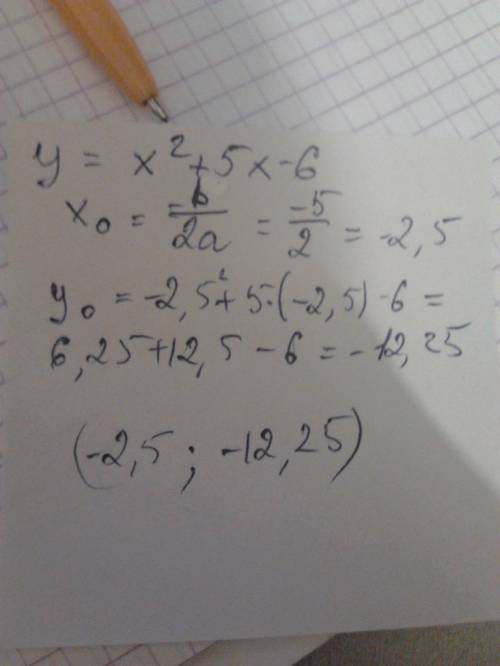 y = x² + 5x - 6
x₀ = -b/2a = -5/2 = -2,5
y₀ = -2,5² + 5·(-2,5) - 6 =
6,25 + 12,5 - 6 = -12,25
(-2,5 ; -12,25)